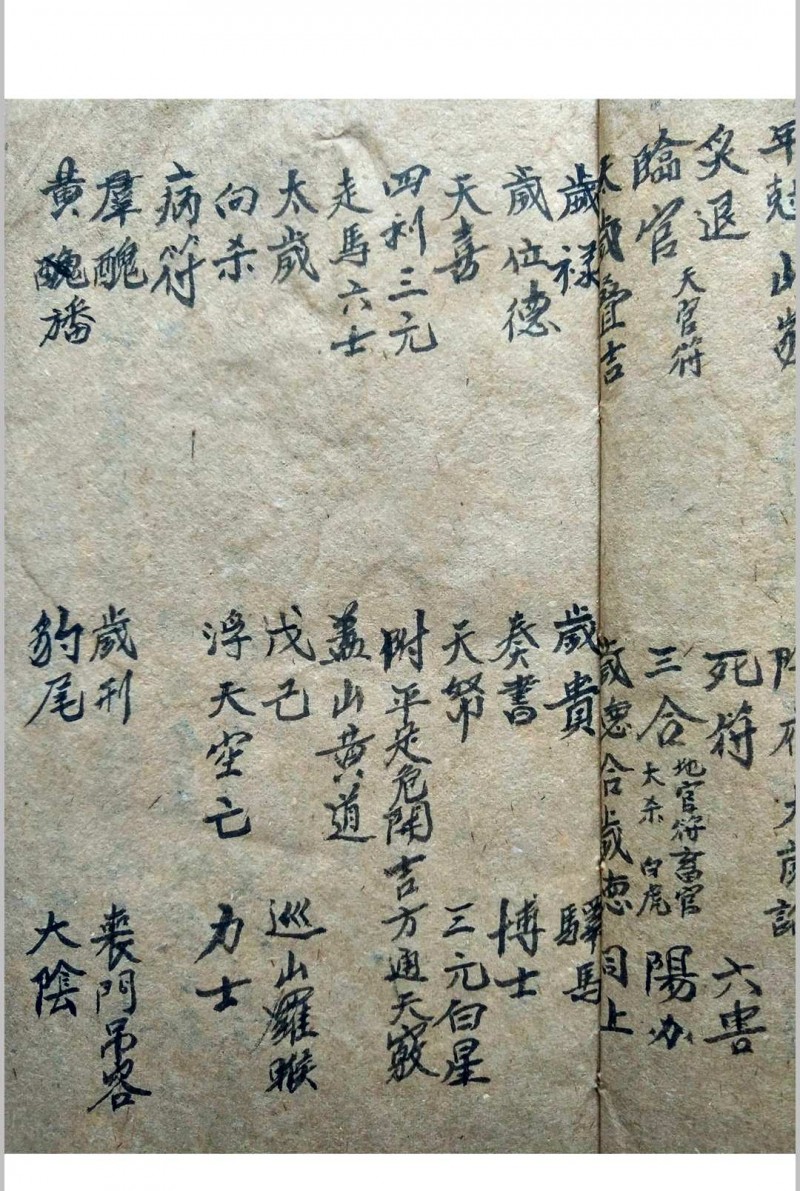 年尅山家 陰府太歲
炙退 死符 六害
臨官 天官符 三合 地官符畜官 大杀 白虎 陽
天歲疊吉 歲德合歲德 同上
歲禄 歲貴 驛馬
歲位德 奏書 博士
天喜 天帑 三元白星
四利三元 附平定危開吉方通天竅
走馬六士 蓋山黄道
太歲 戊己 巡山羅睺
向杀 浮天空亡 力士
病符
羣醜 歲刑 喪門吊客
黄醜旛 豹尾 大陰